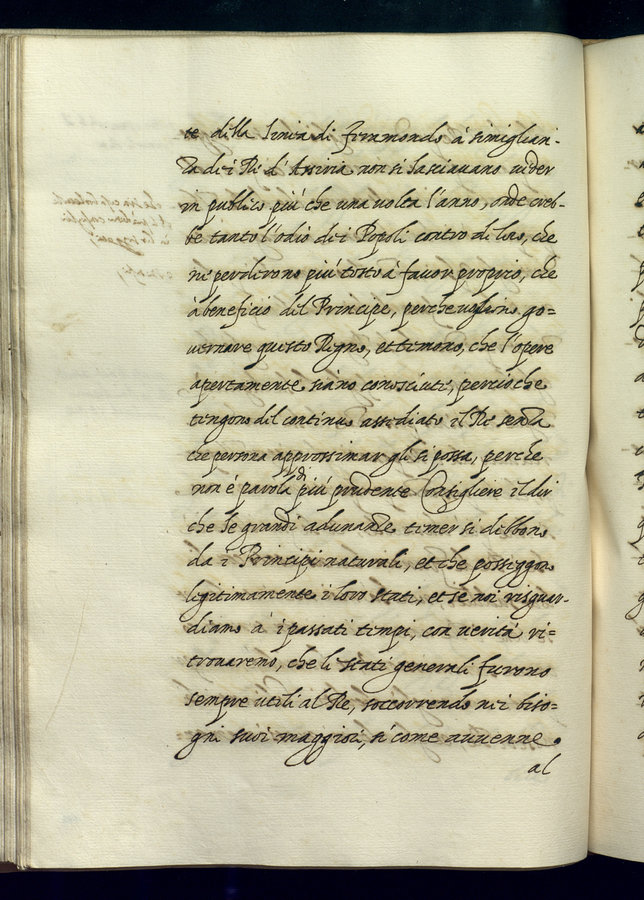 te della linea di Feramondo à simiglian-
za de i Rè d'Assiria non si lasciavano veder
in publico più che una volta l'anno, onde creb-
be tanto l'odio de i Popoli contro di loro, che
ne perderono più tosto à favor proprio, che
à beneficio del Principe, perche vogliono go=
vernare questo Regno, et temono, che l'opere
apertamente siano conosciute, percioche
tengono del continuo assediato il Rè senza
che persona approssimar gli si possa, perche
non è parola di più prudente Consigliere il dir
che le grandi adunanze temer si debbono
da i Principi naturali, et che posseggono
legitimamente i loro stati, et se noi risguar-
diamo à i passati tempi, con verità ri=
trovaremo, che li stati generali furono
sempre utili al Rè, soccorrendo ne i biso=
gni suoi maggiori, si come avvenne
al